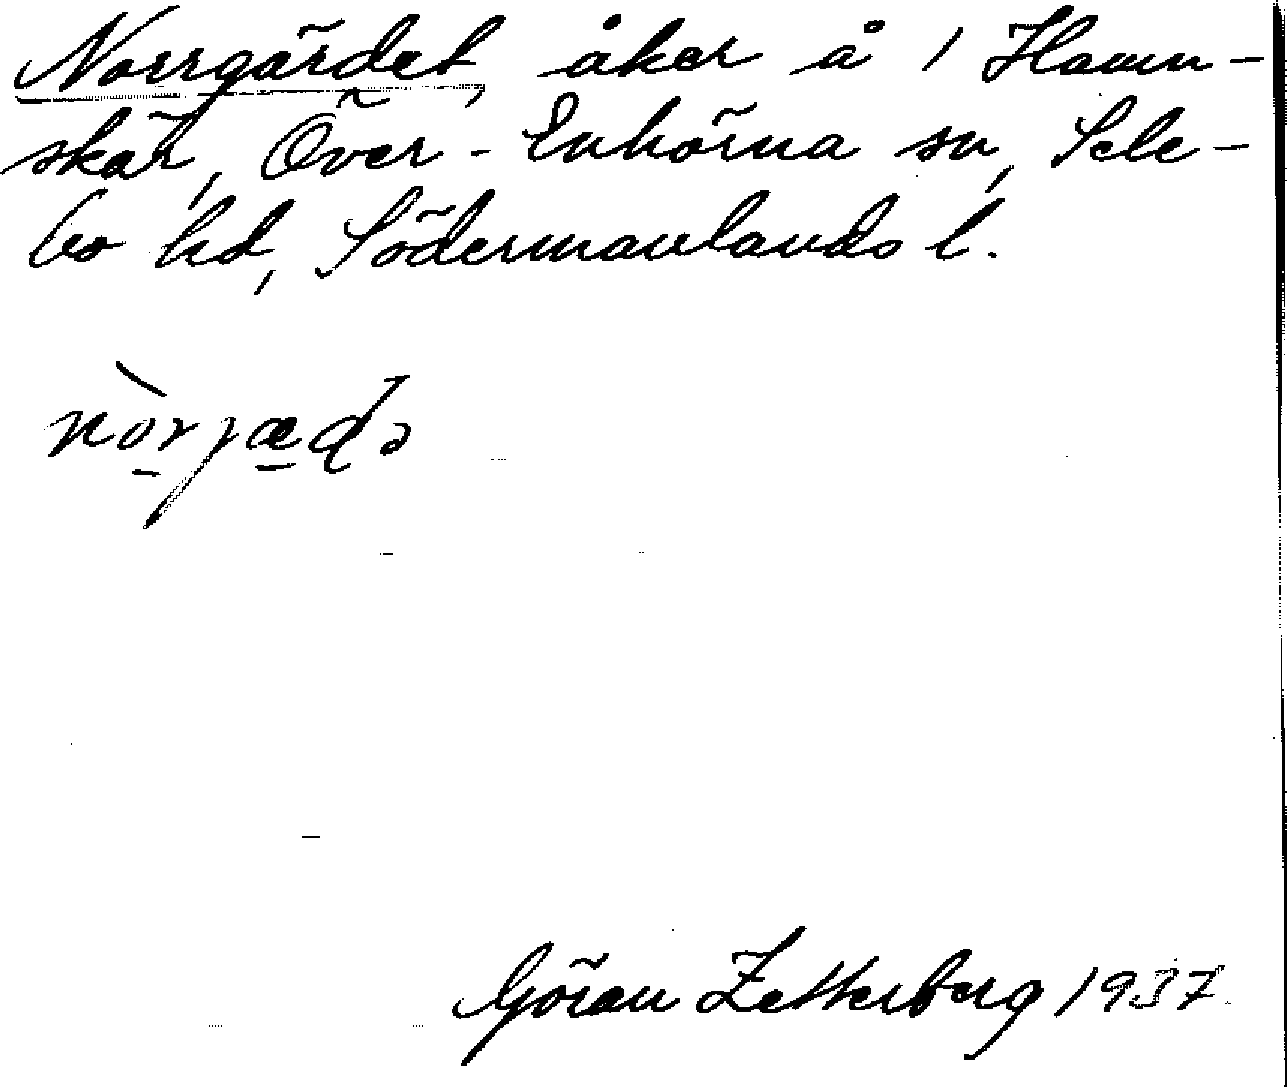 Norrgärdet, åker å 1 Hamn-
skär, Över-Enhörna sn, Sele-
bo hd, Södermanlands l.
nòrjæɖə
Göran Zetterberg 1937.